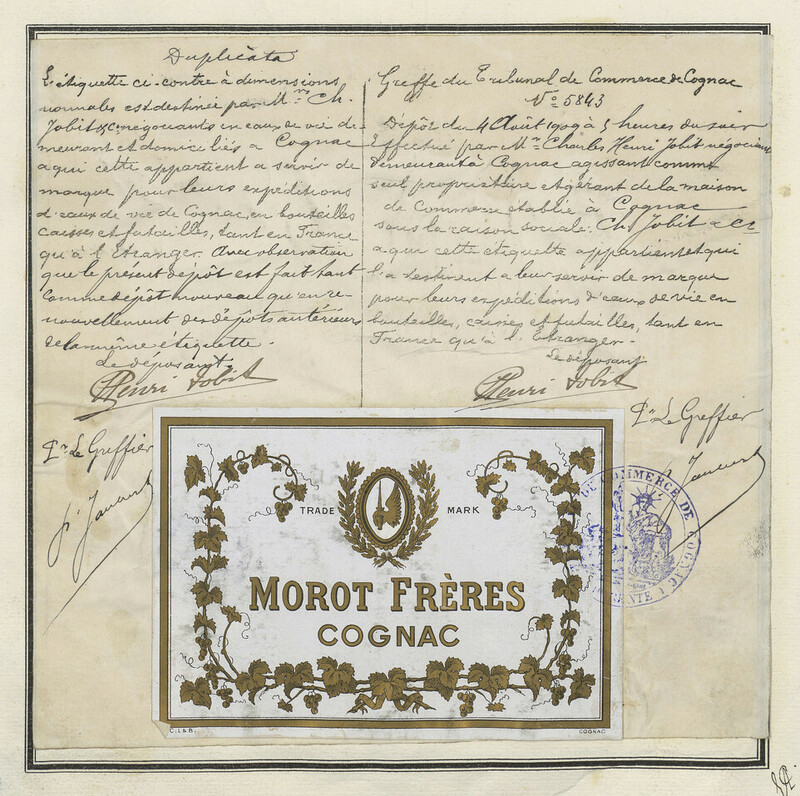 Duplicata
L'étiquette ci-contre à dimensions
normales est destinée par Mrs Ch.
Jobit & Cie négociants en eaux de vie de-
meurant et domiciliés à Cognac
a qui cette appartient a servir de
marque pour leurs expéditions
d'eaux de vie de Cognac, en bouteilles
caisses et futailles, tant en France
qu'à l'Etranger. Avec observation
que le présent dépôt est fait tant
comme dépôt nouveau qu'en re-
nouvellement des dépôts antérieurs
de la même étiquette.
Le déposant
Henri Jobit
Pr Le Greffier
Greffe du Tribunal de Commerce de Cognac
No 5843
Dépôt du 4 Août 1909 à 5 heures du soir
Effectué par Mr Charles Henri Jobit négociant
demeurant à Cognac agissant comme
seul propriétaire et gérant de la maison
de Commerce établie à Cognac
sous la raison sociale: Ch. Jobit & Cie
a qui cette étiquette appartient et qui
l'a destinent a leur servir de marque
pour leurs expéditions d'eaux de vie en
bouteilles, caisses et futailles, tant en
France qu'à l'Étranger.
Le déposant
Henri Jobit
Pr Le Greffier
TRADE MARK
MOROT FRÈRES
COGNAC
C. L & B.
COGNAC
DE COMMERCE DE COGNAC